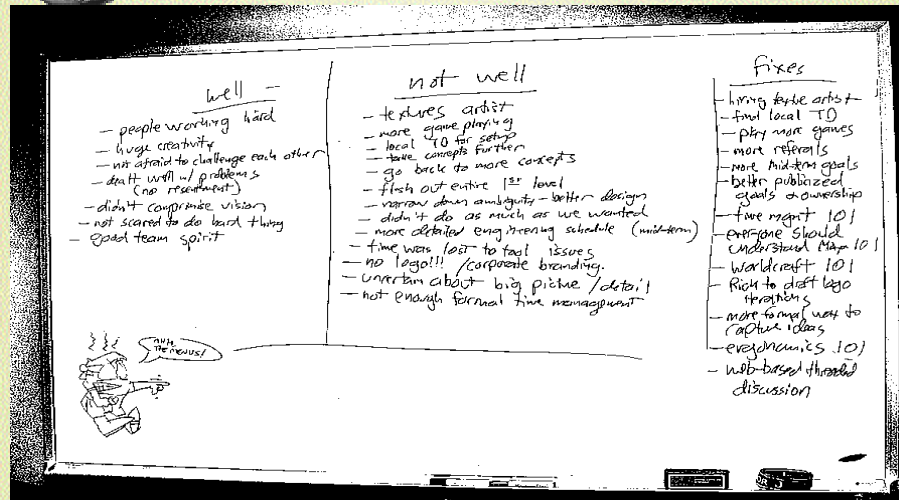 well
- people working hard
- huge creativity
- not afraid to challenge each other
- dealt well w/ problems
(no resentment)
- didn't compromise vision
- not scared to do hard thing
- good team spirit
not well
- textures artist
- more game playing
- local TD for setup
- take concepts further
- go back to more concepts
- flesh out entire 1st level
- narrow down ambiguity - better design
- didn't do as much as we wanted
- more detailed engineering schedule (mid-term)
- time was lost to tool issues
- no logo!!! / corporate branding.
- uncertain about big picture / detail
- not enough formal time management
fixes
- hiring texture artist
- find local TD
- play more games
- more referals
- more mid-term goals
- better publicized
goals & ownership
- time mgmt 101
- everyone should
understand Max 101
- Worldcraft 101
- Rich to draft logo
iterations
- more formal way to
capture ideas
- ergonomics 101
- web-based threaded
discussion
THE MENUS!